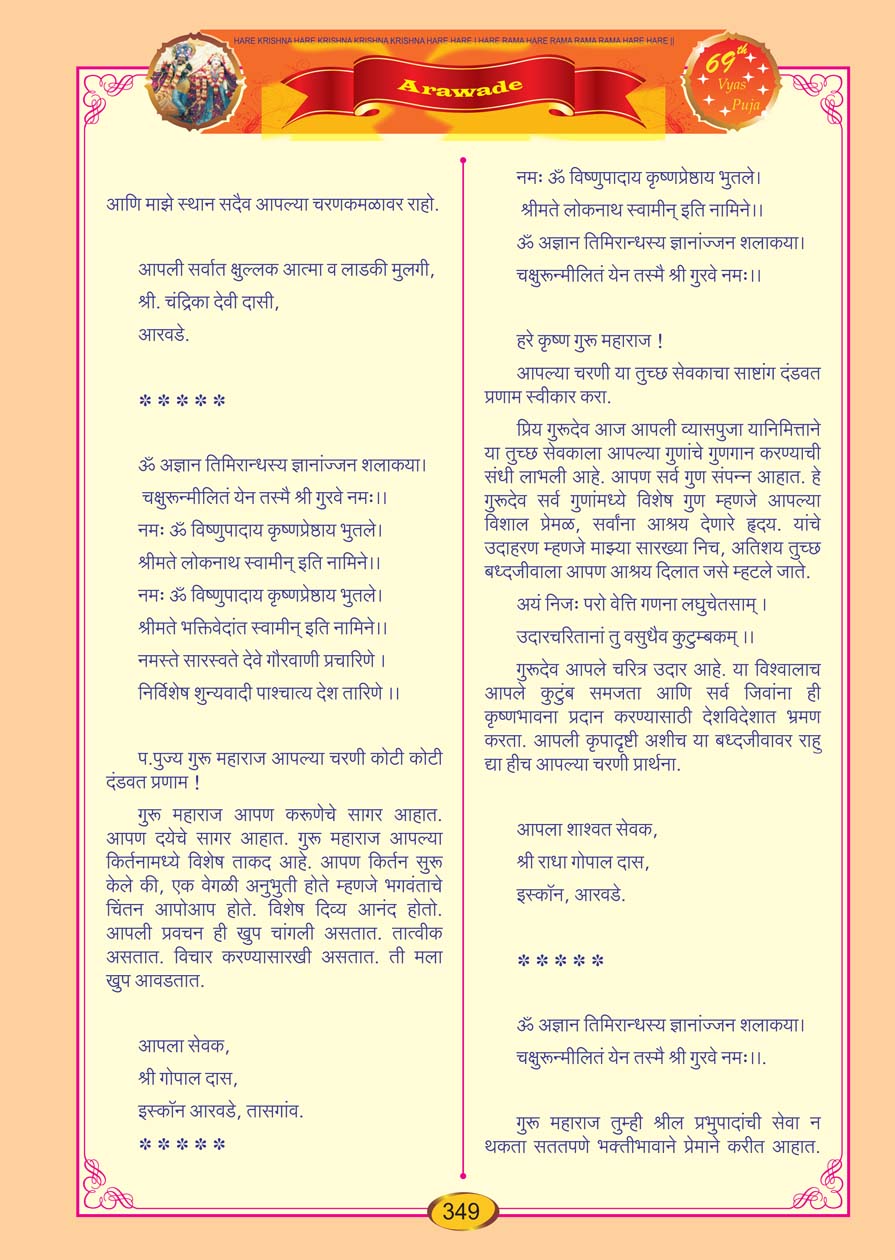 HARE KRISHNA HARE KRISHNA KRISHNA KRISHNA HARE HARE | HARE RAMA HARE RAMA RAMA RAMA HARE HARE ||
Arawade
69th
Vyas
Puja
आणि माझे स्थान सदैव आपल्या चरणकमळावर राहो.
आपली सर्वात क्षुल्लक आत्मा व लाडकी मुलगी,
श्री. चंद्रिका देवी दासी,
आरवडे.
* * * * *
ॐ अज्ञान तिमिरान्धस्य ज्ञानांज्जन शलाकया।
चक्षुरून्मीलितं येन तस्मै श्री गुरवे नमः।।
नमः ॐ विष्णुपादाय कृष्णप्रेष्ठाय भुतले।
श्रीमते लोकनाथ स्वामीन् इति नामिने।।
नमः ॐ विष्णुपादाय कृष्णप्रेष्ठाय भुतले।
श्रीमते भक्तिवेदांत स्वामीन् इति नामिने।।
नमस्ते सारस्वते देवे गौरवाणी प्रचारिणे ।
निर्विशेष शुन्यवादी पाश्चात्य देश तारिणे ।।
प.पुज्य गुरू महाराज आपल्या चरणी कोटी कोटी
दंडवत प्रणाम !
गुरू महाराज आपण करूणेचे सागर आहात.
आपण दयेचे सागर आहात. गुरू महाराज आपल्या
किर्तनामध्ये विशेष ताकद आहे. आपण किर्तन सुरू
केले की, एक वेगळी अनुभुती होते म्हणजे भगवंताचे
चिंतन आपोआप होते. विशेष दिव्य आनंद होतो.
आपली प्रवचन ही खुप चांगली असतात. तात्वीक
असतात. विचार करण्यासारखी असतात. ती मला
खुप आवडतात.
आपला सेवक,
श्री गोपाल दास,
इस्कॉन आरवडे, तासगांव.
* * * * *
नमः ॐ विष्णुपादाय कृष्णप्रेष्ठाय भुतले।
श्रीमते लोकनाथ स्वामीन् इति नामिने।।
ॐ अज्ञान तिमिरान्धस्य ज्ञानांज्जन शलाकया।
चक्षुरून्मीलितं येन तस्मै श्री गुरवे नमः।।
हरे कृष्ण गुरू महाराज !
आपल्या चरणी या तुच्छ सेवकाचा साष्टांग दंडवत
प्रणाम स्वीकार करा.
प्रिय गुरूदेव आज आपली व्यासपुजा यानिमित्ताने
या तुच्छ सेवकाला आपल्या गुणांचे गुणगान करण्याची
संधी लाभली आहे. आपण सर्व गुण संपन्न आहात. हे
गुरूदेव सर्व गुणांमध्ये विशेष गुण म्हणजे आपल्या
विशाल प्रेमळ, सर्वांना आश्रय देणारे हृदय. यांचे
उदाहरण म्हणजे माझ्या सारख्या निच, अतिशय तुच्छ
बध्दजीवाला आपण आश्रय दिलात जसे म्हटले जाते.
अयं निजः परो वेत्ति गणना लघुचेतसाम् ।
उदारचरितानां तु वसुधैव कुटुम्बकम् ।।
गुरूदेव आपले चरित्र उदार आहे. या विश्वालाच
आपले कुटुंब समजता आणि सर्व जिवांना ही
कृष्णभावना प्रदान करण्यासाठी देशविदेशात भ्रमण
करता. आपली कृपादृष्टी अशीच या बध्दजीवावर राहु
द्या हीच आपल्या चरणी प्रार्थना.
आपला शाश्वत सेवक,
श्री राधा गोपाल दास,
इस्कॉन, आरवडे.
* * * * *
ॐ अज्ञान तिमिरान्धस्य ज्ञानांज्जन शलाकया।
चक्षुरून्मीलितं येन तस्मै श्री गुरवे नमः।।.
गुरू महाराज तुम्ही श्रील प्रभुपादांची सेवा न
थकता सततपणे भक्तीभावाने प्रेमाने करीत आहात.
349